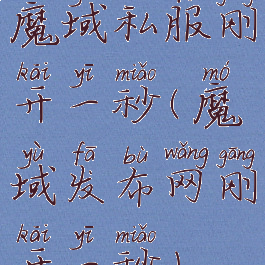 魔域私服刚
kāi yī miǎo mó
开一秒(魔
yù fā bù wǎng gāng
域发布网刚
kāi yī miǎo
开一秒)